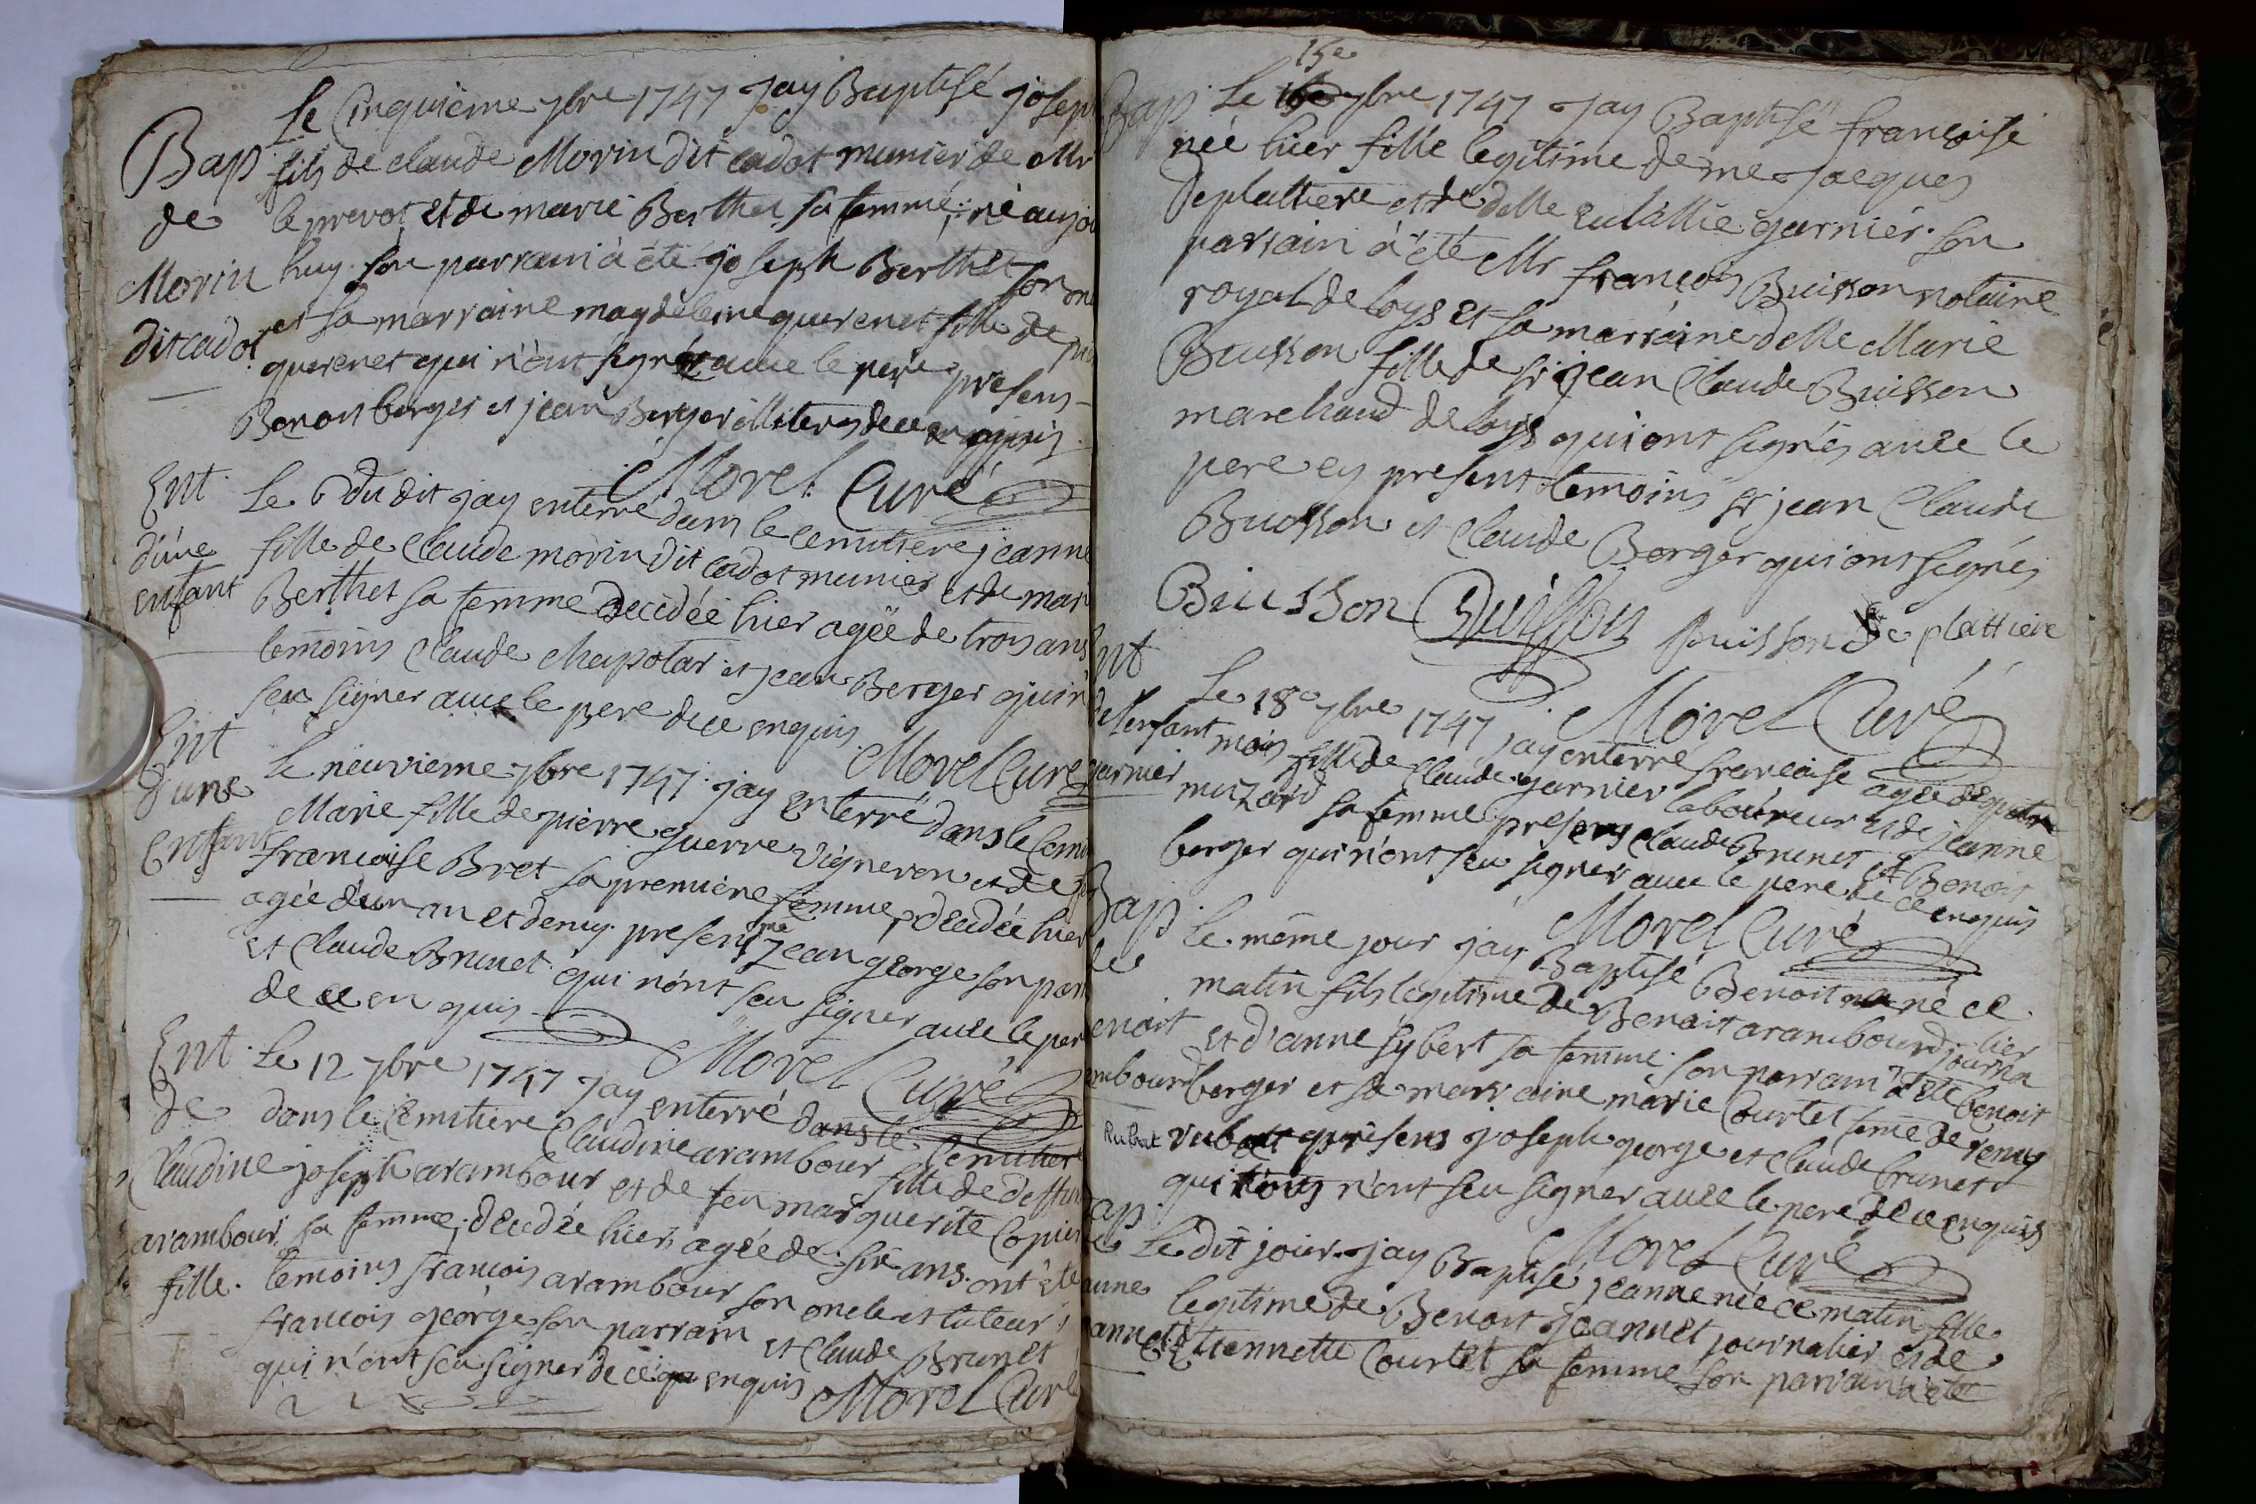 Le Cinquième 7bre 1747 Jay Baptisé joseph
Bap fils de claude Morin dit cadot munier de Mr
de le prevot et de marie Berthet sa femme, né aujou
Morin huy. son parrain à été joseph Berthet son on
dit cadot et sa marraine magdeleine querenet fille de
querenet qui n'ont signé avec le pere presens
Benoit berger et jean Berger illiteres de ce enquis
Morel Curé
Ent. Le 6 du dit jay enterré dans le cemitiere jeanne
d'une fille de Claude morin dit cadot munier et de mar
enfant Berthet sa femme decedée hier agée de trois ans
temoins Claude chapolar et jean Berger qui n'
seu signer avec le pere de ce enquis
Morel Curé
Ent Le neuvieme 7bre 1747. jay enterré dans le Cemi
d'une Marie fille de pierre guerre vigneron et de
Enfant francoise Bret sa premiere femme, decedée hier
agée d'un an et demy. presens me Jean george son parr
et Claude Brunet qui n'ont seu signer avec le pere
de ce en quis
Morel Curé
Ent. Le 12 7bre 1747 jay enterré dans le Cemitiere
de dans le Cemitiere Claudine arambour fille de deffun
Claudine joseph arambour et de feu marguerite Copier
arambour sa femme, decedée hier, agée de six ans. ont été
fille. temoins francois arambour son oncle et tuteur,
francois george son parrain et Claude Brunet
qui n'ont seu signer de ce enquis
Morel Curé
15e
Bap. Le 7bre 1747 Jay Baptisé francoise
née hier fille legitime de me Jacques
Deplattiere et de delle eulallie garnier. son
parrain à été Mr François Buisson notaire
royal de loys et sa marraine delle Marie
Buisson fille de sr jean Claude Buisson
marchand de loys qui ont signés avec le
pere ey present temoins sr jean Claude
Buisson et Claude Berger qui ont signés
Buisson Buisson Buisson De plattiere
Morel Curé
Ent Le 18e 7bre 1747 jay enterré francoise agée de quatre
de l'enfant mois fille de Claude garnier laboureur et de jeanne
garnier muzard sa femme presens Claude Brunet et Benoit
berger qui n'ont seu signer avec le pere de ce enquis
Morel Curé
Bap. Le même jour jay Baptisé Benoit né ce
de matin fils legitime de Benoit arambourd journalier
enoit et d'anne sybert sa femme. son parrain à été benoit
mbourd berger et sa marraine marie Courtet feme de remy
Rubat rubat presens joseph george et claude brunet
qui n'ont seu signer avec le pere de ce enquis
Morel Curé
ap. Le dit jour jay Baptisé jeanne née ce matin fille
anne legitime de Benoit Jeannet journalier et de
annet etiennette Courtet sa femme son parrain à été